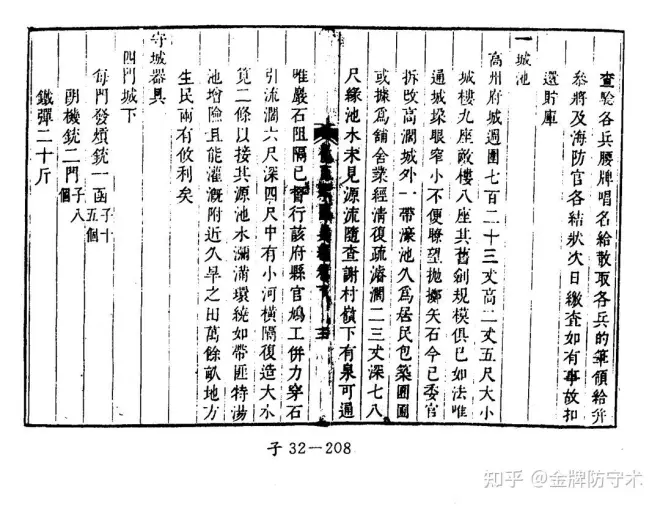 查驗各兵腰牌唱名給散取各兵的筆領給并
參將及海防官各結狀次日繳查如有事故扣
還貯庫
一城池
高州府城週圍七百二十三丈高二丈五尺大小
城樓九座敵樓八座其舊創規模俱已如法唯
通城垜眼窄小不便瞭望拋擲矢石今已委官
拆改高濶城外一帶濠池久為居民包築園圃
或據為舖舍業經清復疏濬濶二三丈深七八
尺緣池水未見源流隨查謝村嶺下有泉可通
唯巖石阻隔已督行該府縣官鳩工併力穿石
引流濶六尺深四尺中有小河橫隔復造大水
筧二條以接其源池水瀰滿環繞如帶匪特湯
池增險且能灌溉附近久旱之田萬餘畝地方
生民兩有攸利矣
守城器具
四門城下
每門發熕銃一函子十五個
朋機銃二門子八個
鐵彈二十斤
子 32—208
知乎 @金牌防守术